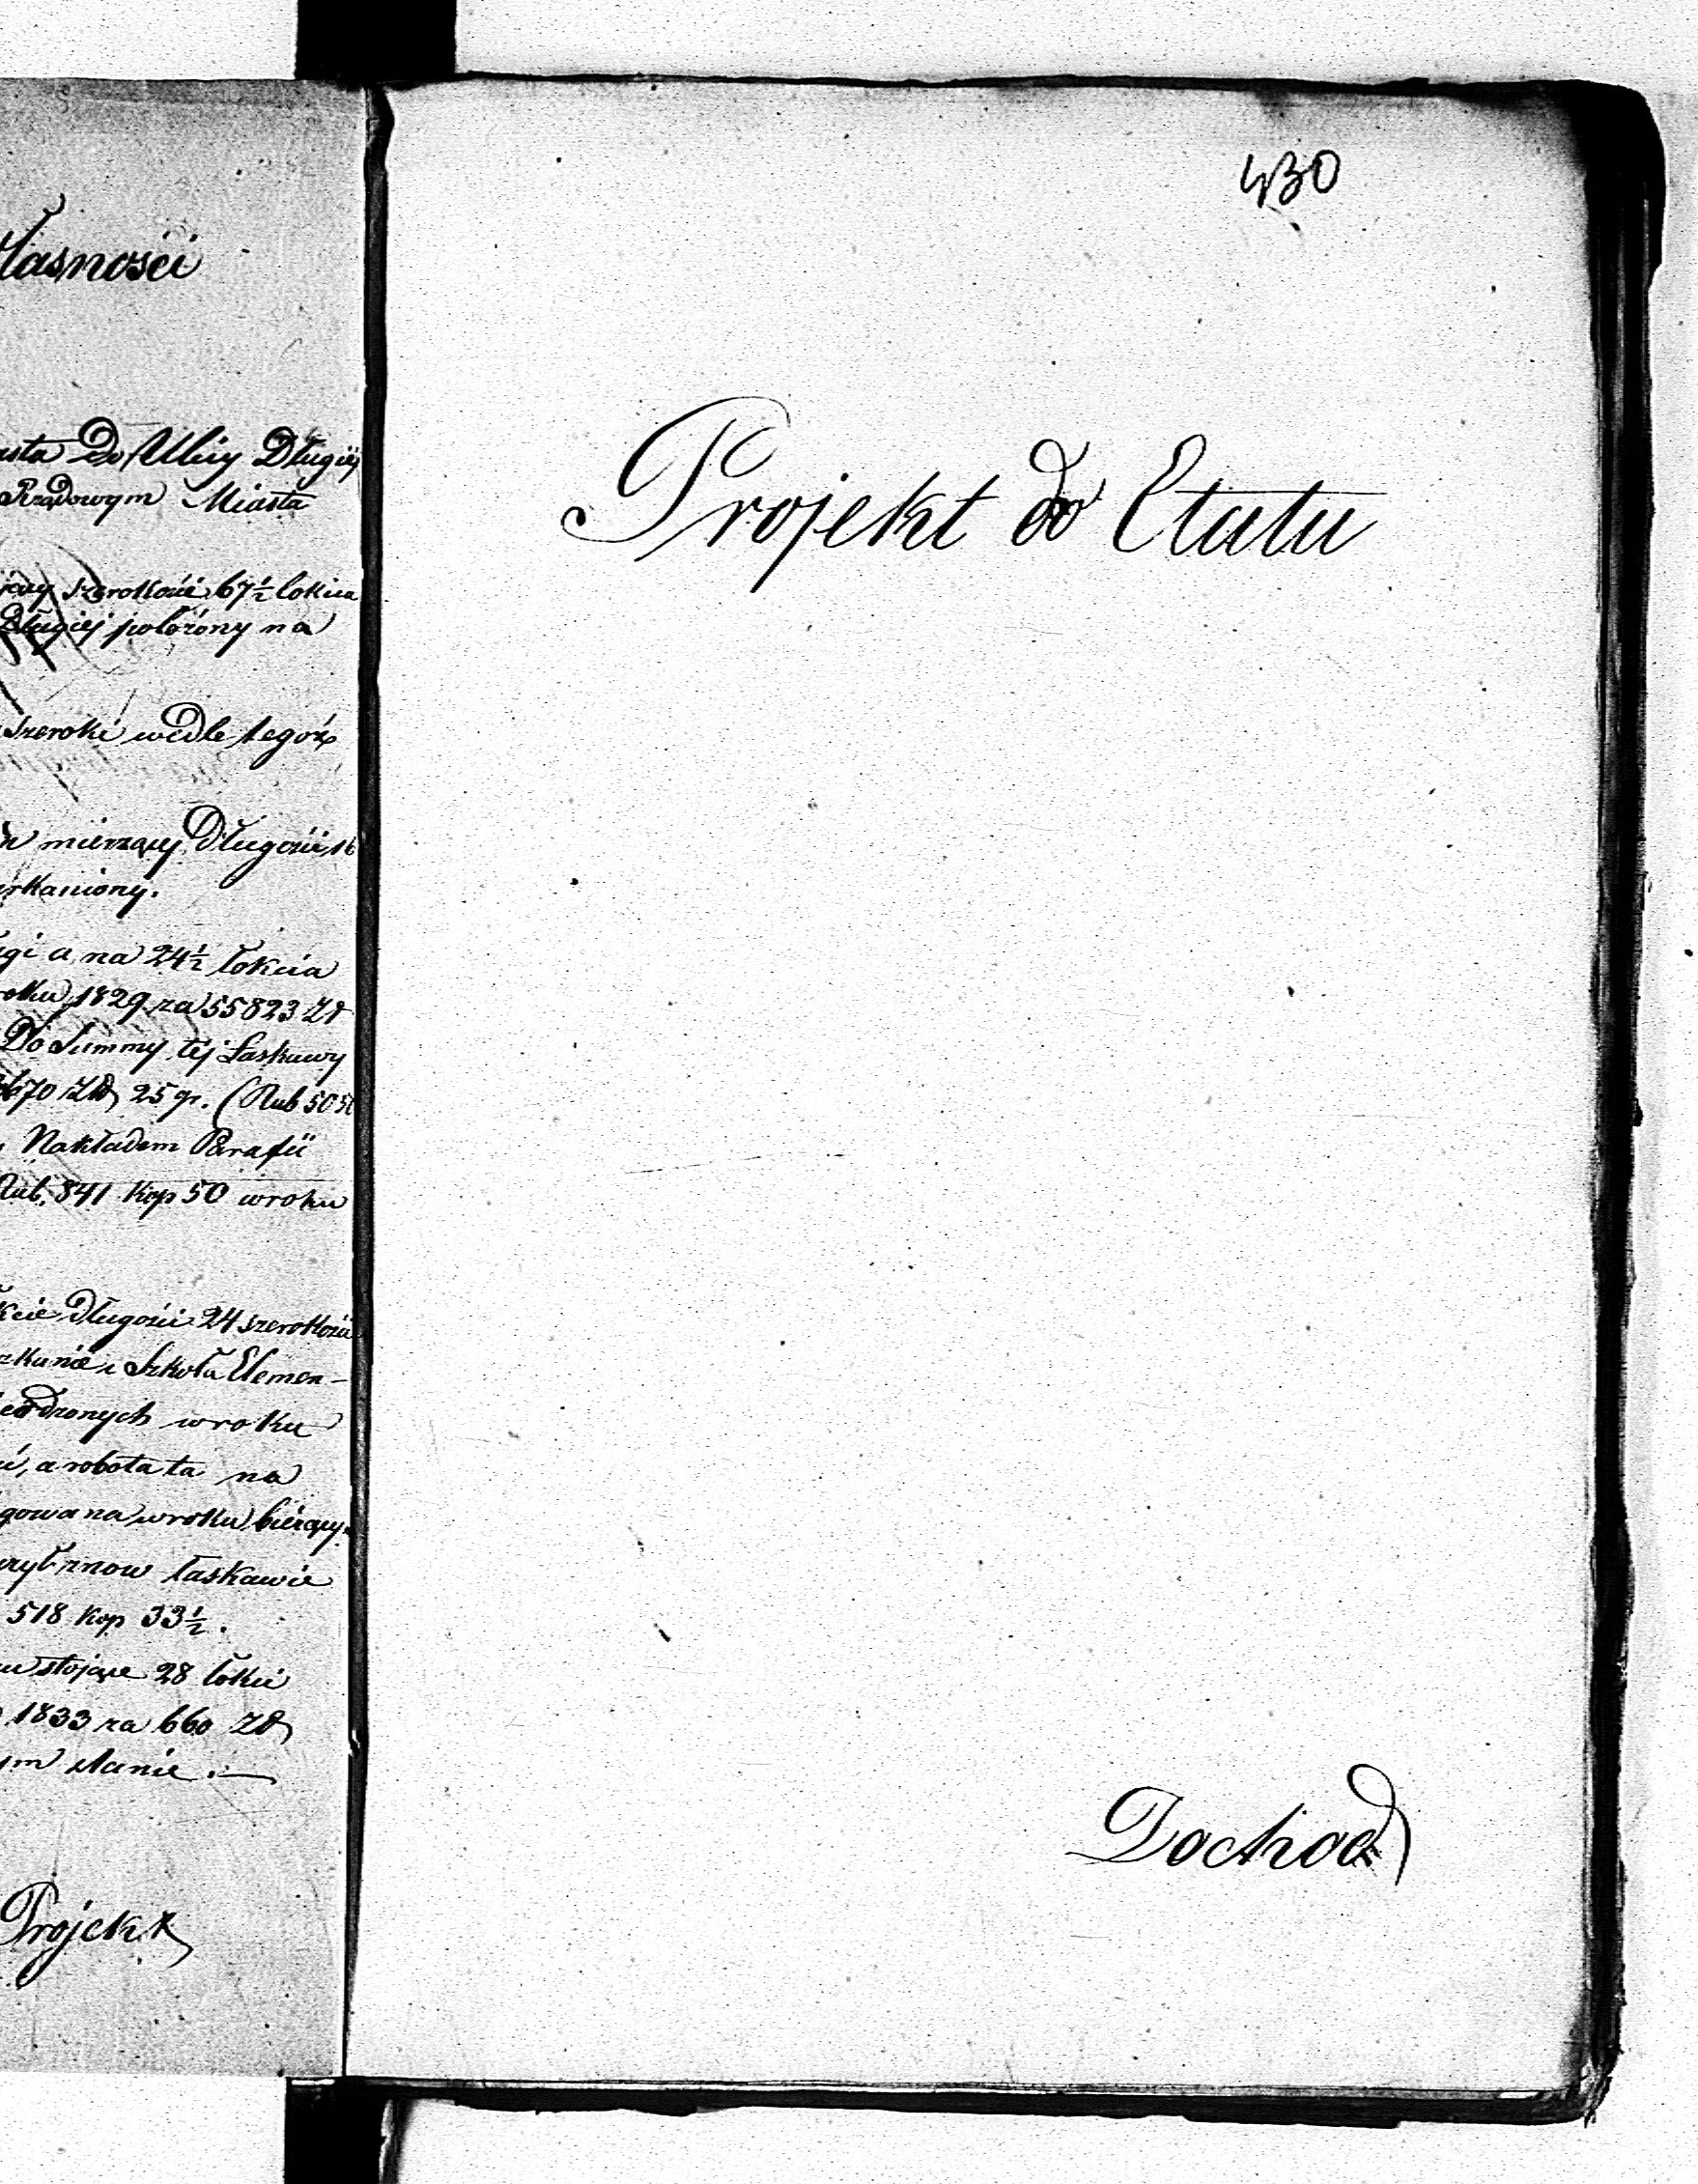 łasności
Do Ulicy Długiéj
Rządowym Miasta
szerokości 67½ łokcia
Długiej położony na
szeroki wedle tegoż
mierzącej Długości 16
arkaniony.
a na 24½ łokcia
roku 1829 za 55823 Zł
Do Summy téj Łaskawy
670 Zł 25 gr. (Rub 50
Nakładem Parafii
Rub. 841 Kop 50 w roku
Długości 24 szerokości
i Szkoła Elemen-
w roku
a robota ta na
w roku bieżący
znow łaskawie
518 Kop 33½.
stojące 28 łokci
1833 za 660 Zł
stanie.—
Projekt
430
Projekt do Etatu
Dochod